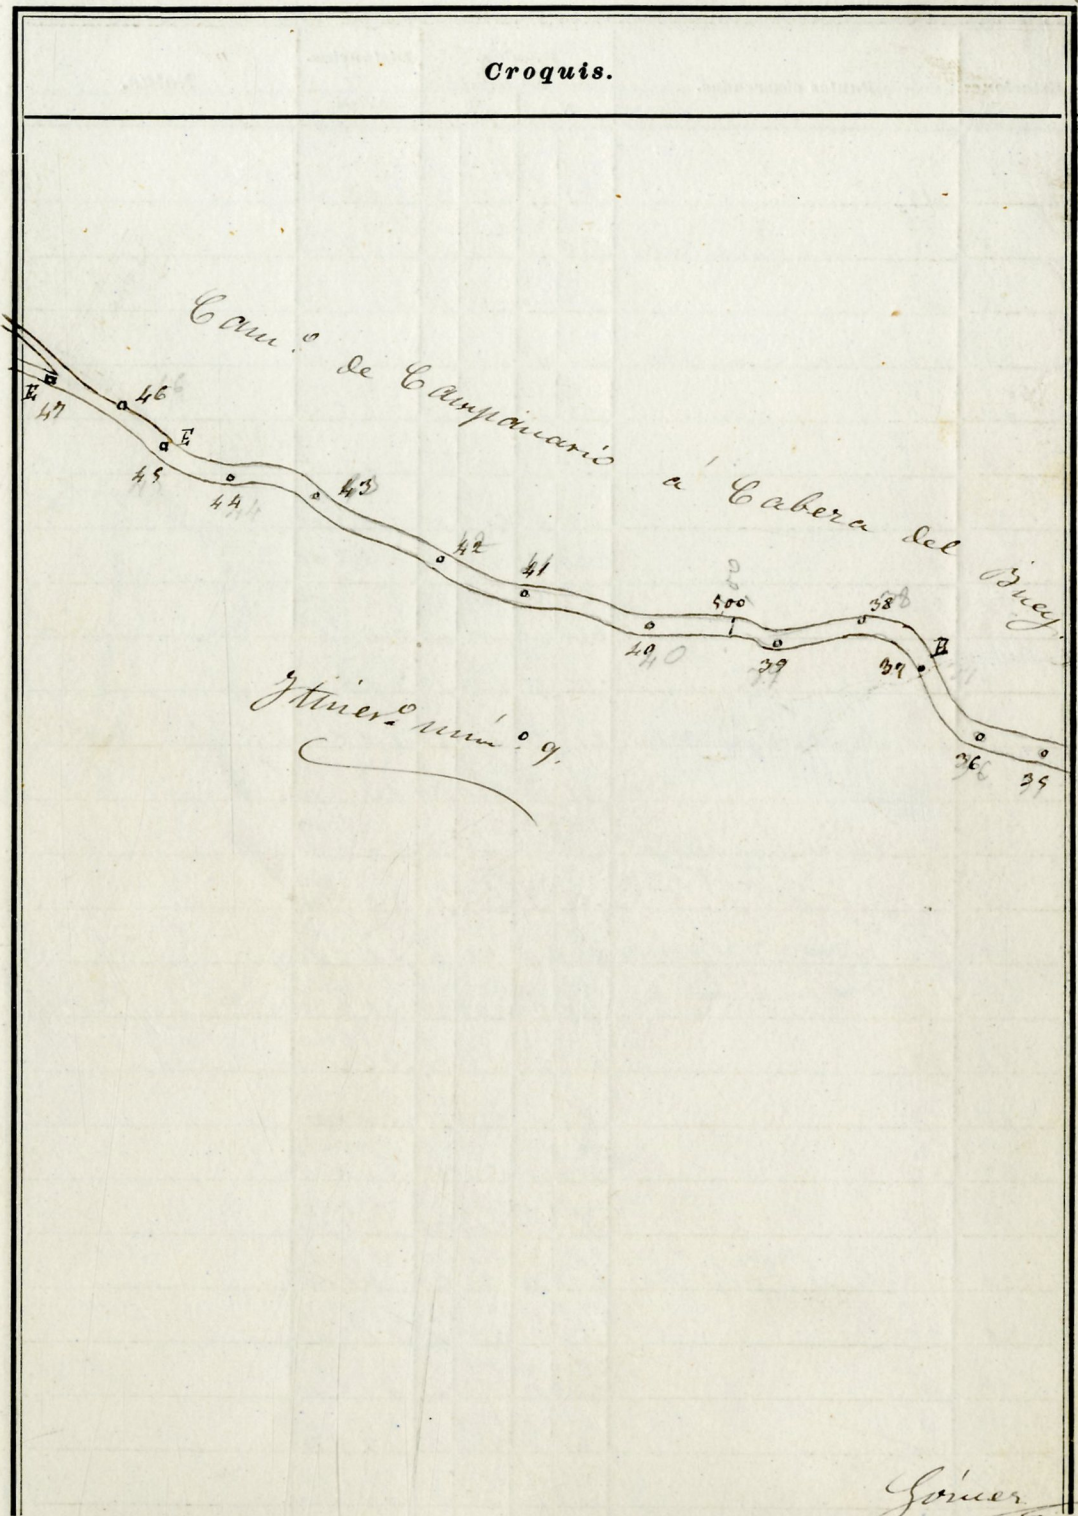 Croquis.
Cam.º de Campanario á Cabeza del Buey.
E
47
46
E
45
44
43
42
41
40
500
39
38
E
37
36
35
Itiner.º núm.º 9.
Gómez